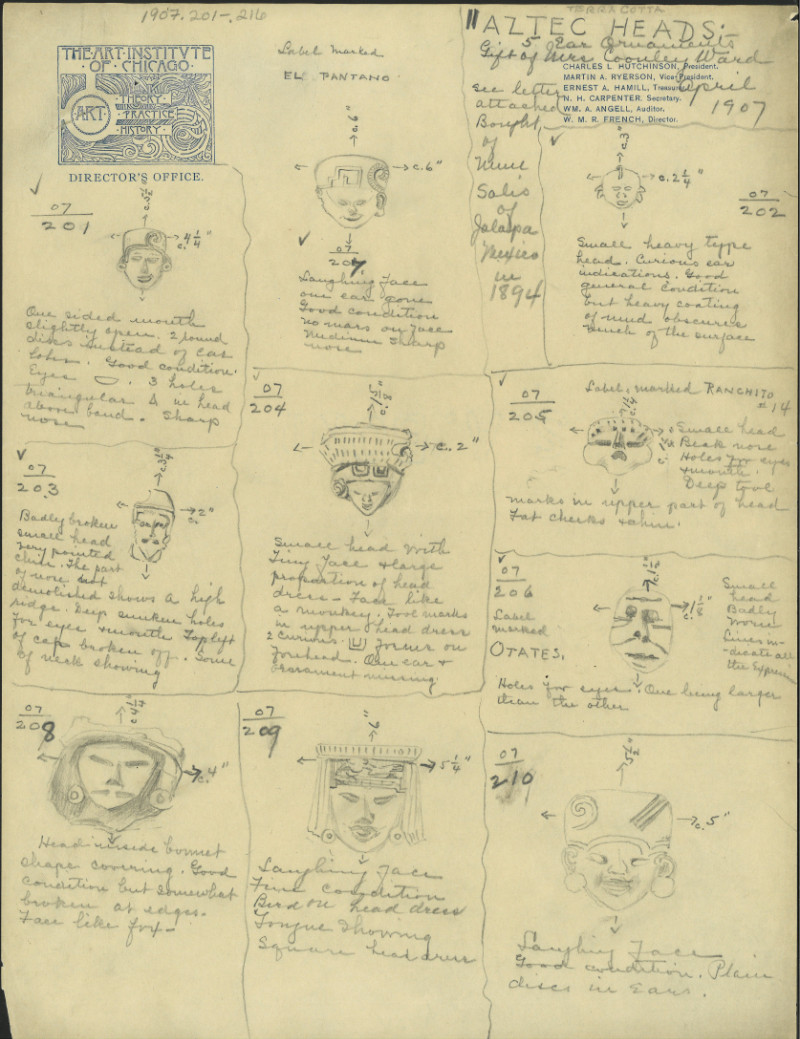 1907.201-.216
TERRA COTTA
11 AZTEC HEADS:
5 Ear Ornaments
Gift of Mrs Coonley Ward
April
1907
THE·ART·INSTITVTE
·OF·CHICAGO·
ART·
THEORY·
PRACTICE
HISTORY·
DIRECTOR'S OFFICE.
CHARLES L. HUTCHINSON, President.
MARTIN A. RYERSON, Vice-President.
ERNEST A. HAMILL, Treasurer.
N. H. CARPENTER, Secretary.
WM. A. ANGELL, Auditor.
W. M. R. FRENCH, Director.
see letter
attached
Bought
of
Mme
Salis
of
Jalapa
Mexico
in
1894
07
201
c. 4 1/4"
One sided mouth
slightly open. 2 round
discs instead of ear
lobes. Good condition.
Eyes. 3 holes
triangular in head
above band. Sharp
nose
Label marked
EL PANTANO
c. 6"
c. 6"
07
207
Laughing Face
one ear gone
Good condition
no mars on face
Medium Sharp
nose
07
202
c. 2 1/4"
Small heavy type
head. Curious ear
indications. Good
general condition
but heavy coating
of mud obscures
much of the surface
07
203
2"
c.
Badly broken
small head
very pointed
chin. The part
of nose not
demolished shows a high
ridge. Deep sunken holes
for eyes & mouth. Top left
of cap broken off. Some
of neck showing
07
204
c. 2"
Small head with
Tiny face & large
proportion of head
dress - Face like
a monkey. Tool marks
in upper head dress
2 curious forms on
forehead. One ear &
ornament missing
07
205
Label, marked RANCHITO
#14
Small head
Beak nose
Holes for eyes
& mouth.
Deep tool
marks in upper part of head
Fat cheeks & chin.
07
206
Label
marked
OTATES.
1 1/8"
c.
Small
head
Badly
Worn
Lines in-
-dicate all
the Expression
Holes for eyes. One being larger
than the other
07
208
c. 4"
Head inside bonnet
shape covering. Good
condition but somewhat
broken at edges.
Face like fox -
07
209
6"
5 1/4"
Laughing Face
Fine condition
Bird on head dress
Tongue showing
Square head dress
07
210
5 1/2"
c. 5"
Laughing Face
Good condition. Plain
discs in Ears.